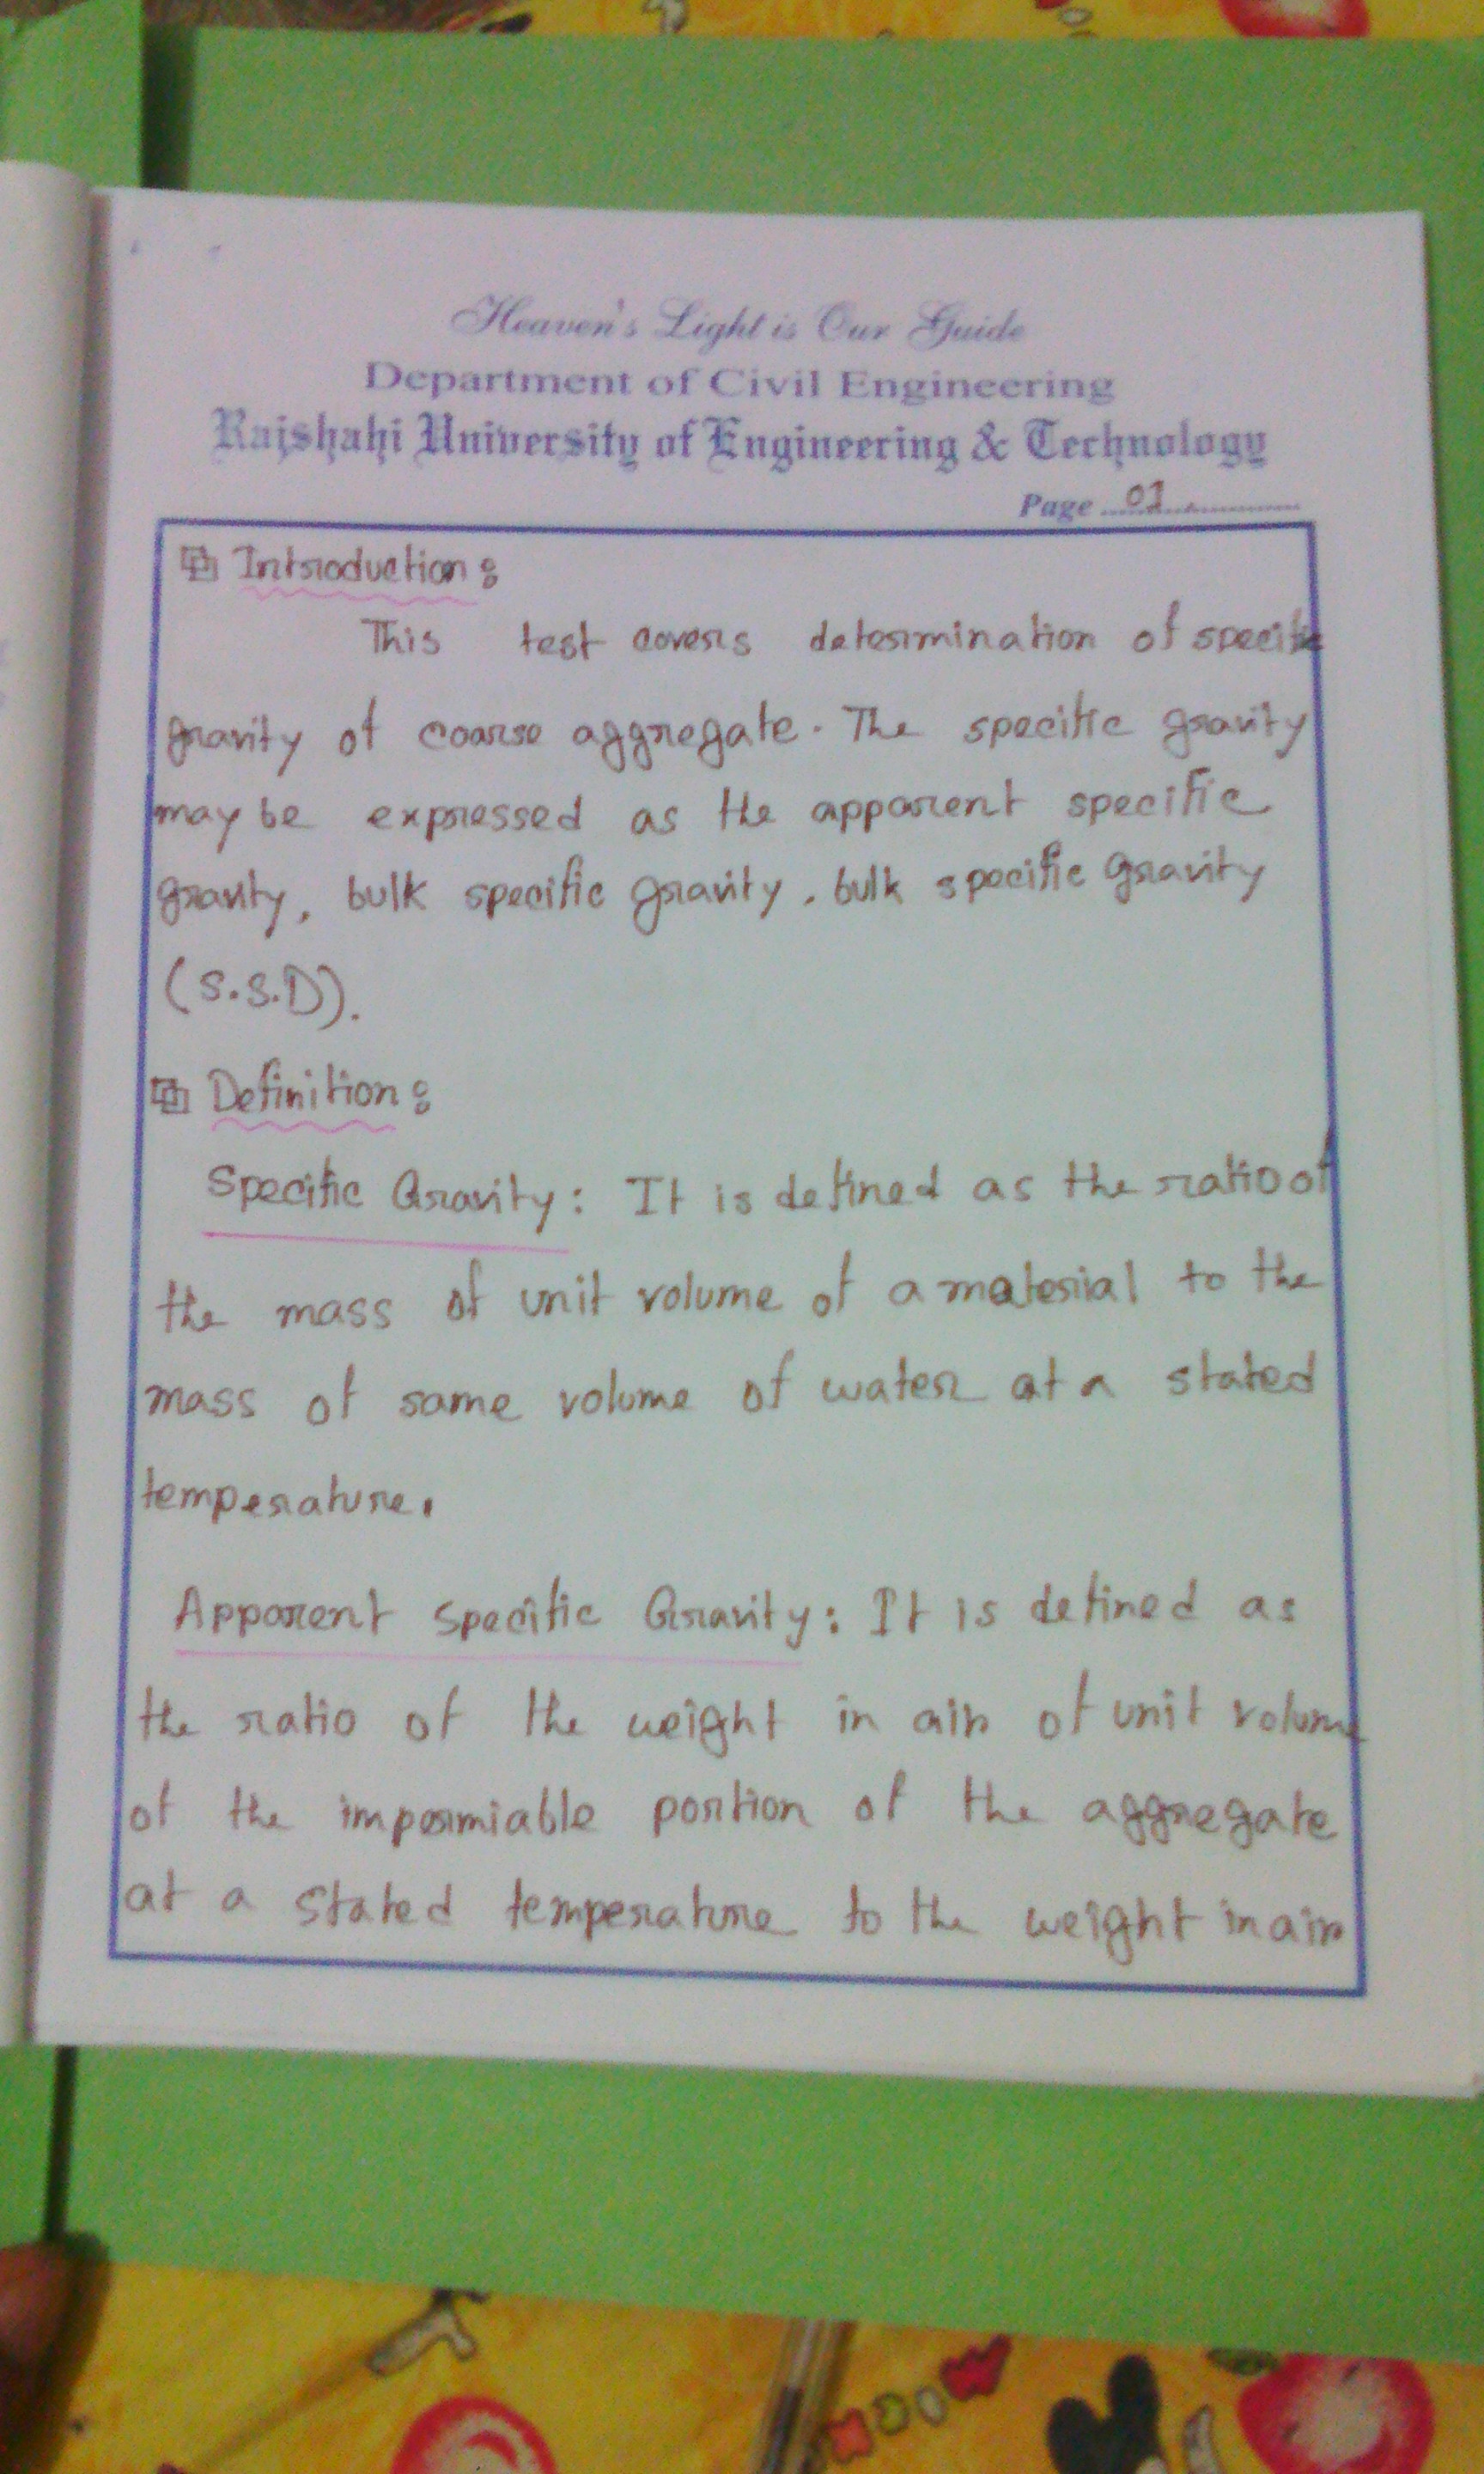 Heaven's Light is Our Guide
Department of Civil Engineering
Rajshahi University of Engineering & Technology
Page 01
Introduction:
This test covers determination of specific
gravity of coarse aggregate. The specific gravity
may be expressed as the apparent specific
gravity, bulk specific gravity, bulk specific gravity
(S.S.D).
Definition:
Specific Gravity: It is defined as the ratio of
the mass of unit volume of a material to the
mass of same volume of water at a stated
temperature.
Apparent Specific Gravity: It is defined as
the ratio of the weight in air of unit volume
of the impermiable portion of the aggregate
at a stated temperature to the weight in air